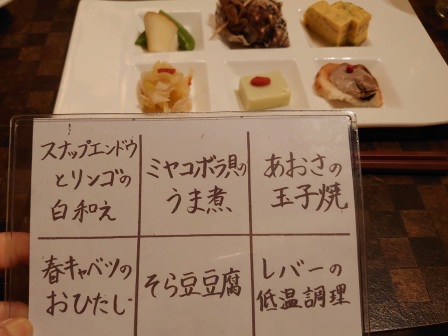 スナップエンドウ
とリンゴの
白和え
ミヤコボラ貝の
うま煮
あおさの
玉子焼
春キャベツの
おひたし
そら豆豆腐
レバーの
低温調理